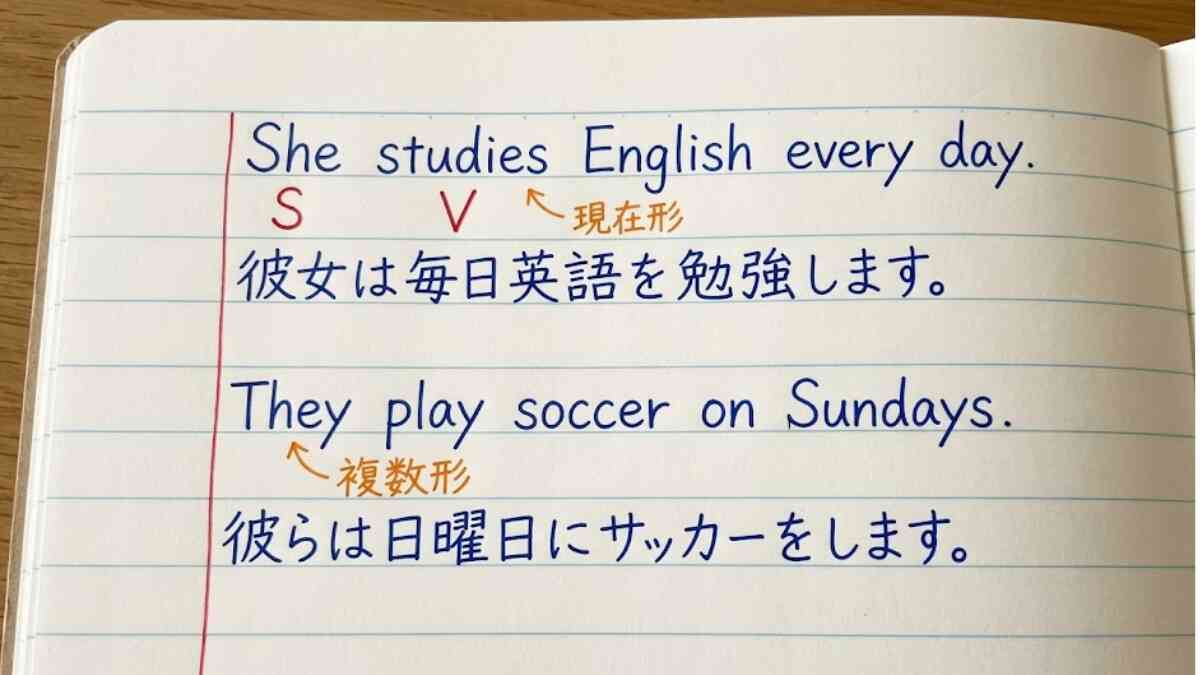 She studies English every day.
S V 現在形
彼女は毎日英語を勉強します。
They play soccer on Sundays.
複数形
彼らは日曜日にサッカーをします。